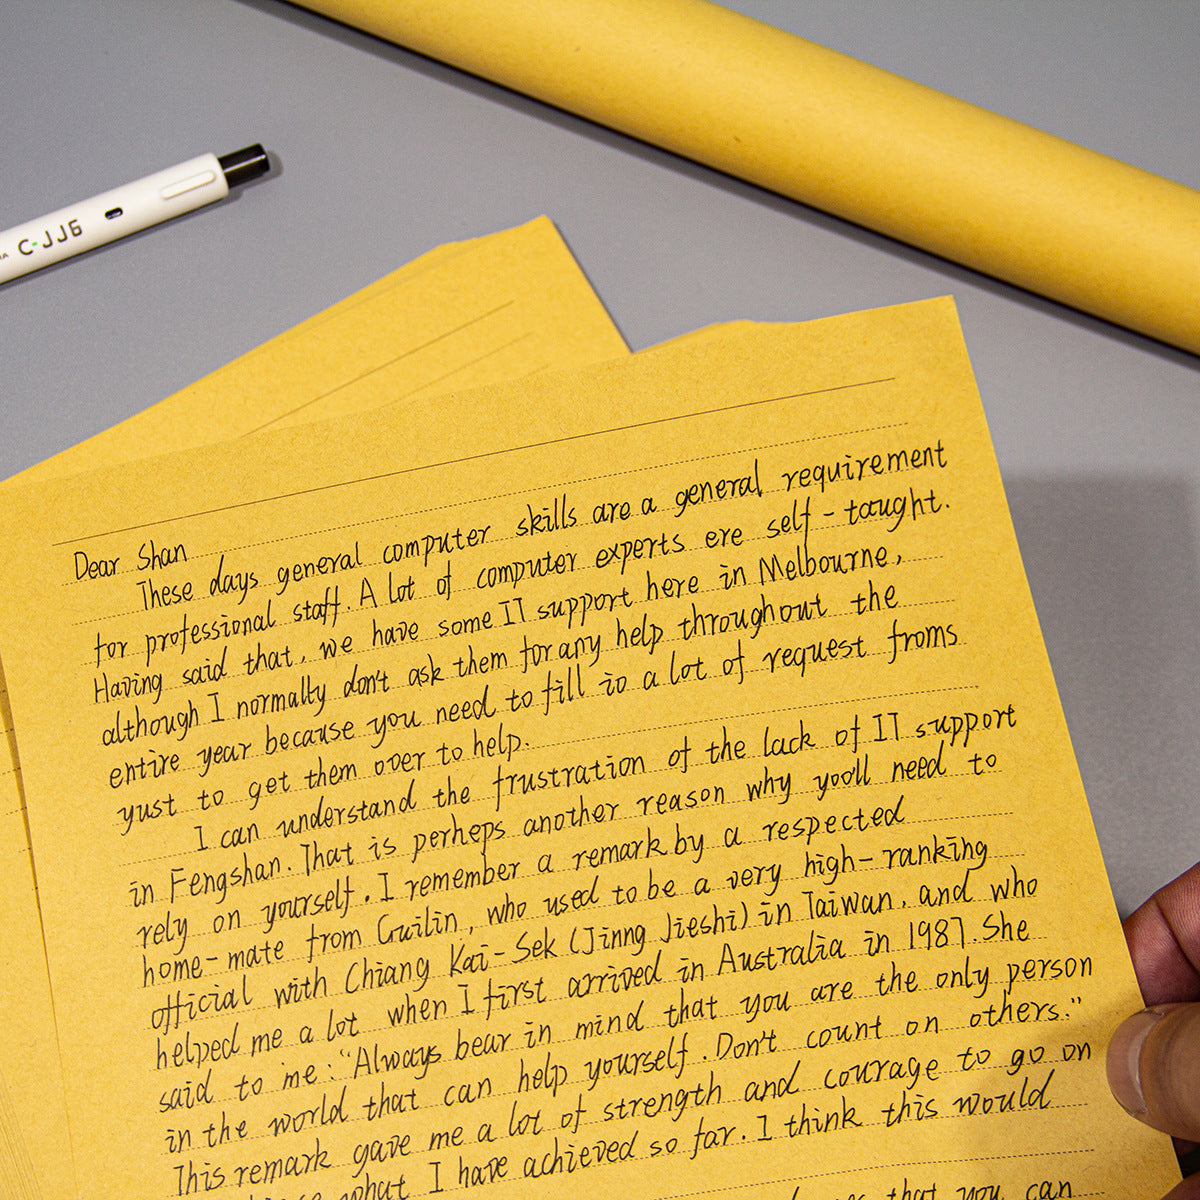 C-JJ6
Dear Shan
These days general computer skills are a general requirement
for professional staff. A lot of computer experts ere self-taught.
Having said that, we have some IT support here in Melbourne,
although I normally don't ask them for any help throughout the
entire year because you need to fill io a lot of request froms
yust to get them over to help.
I can understand the frustration of the lack of IT support
in Fengshan. That is perheps another reason why yoo'll need to
rely on yourself. I remember a remark by a respected
home-mate from Guilin, who used to be a very high-ranking
official with Chiang Kai-Sek (Jinng Jieshi) in Taiwan, and who
helped me a lot when I first arrived in Australia in 1987. She
said to me: "Always bear in mind that you are the only person
in the world that can help yourself. Don't count on others."
This remark gave me a lot of strength and courage to go on
what I have achieved so far. I think this would
that you can